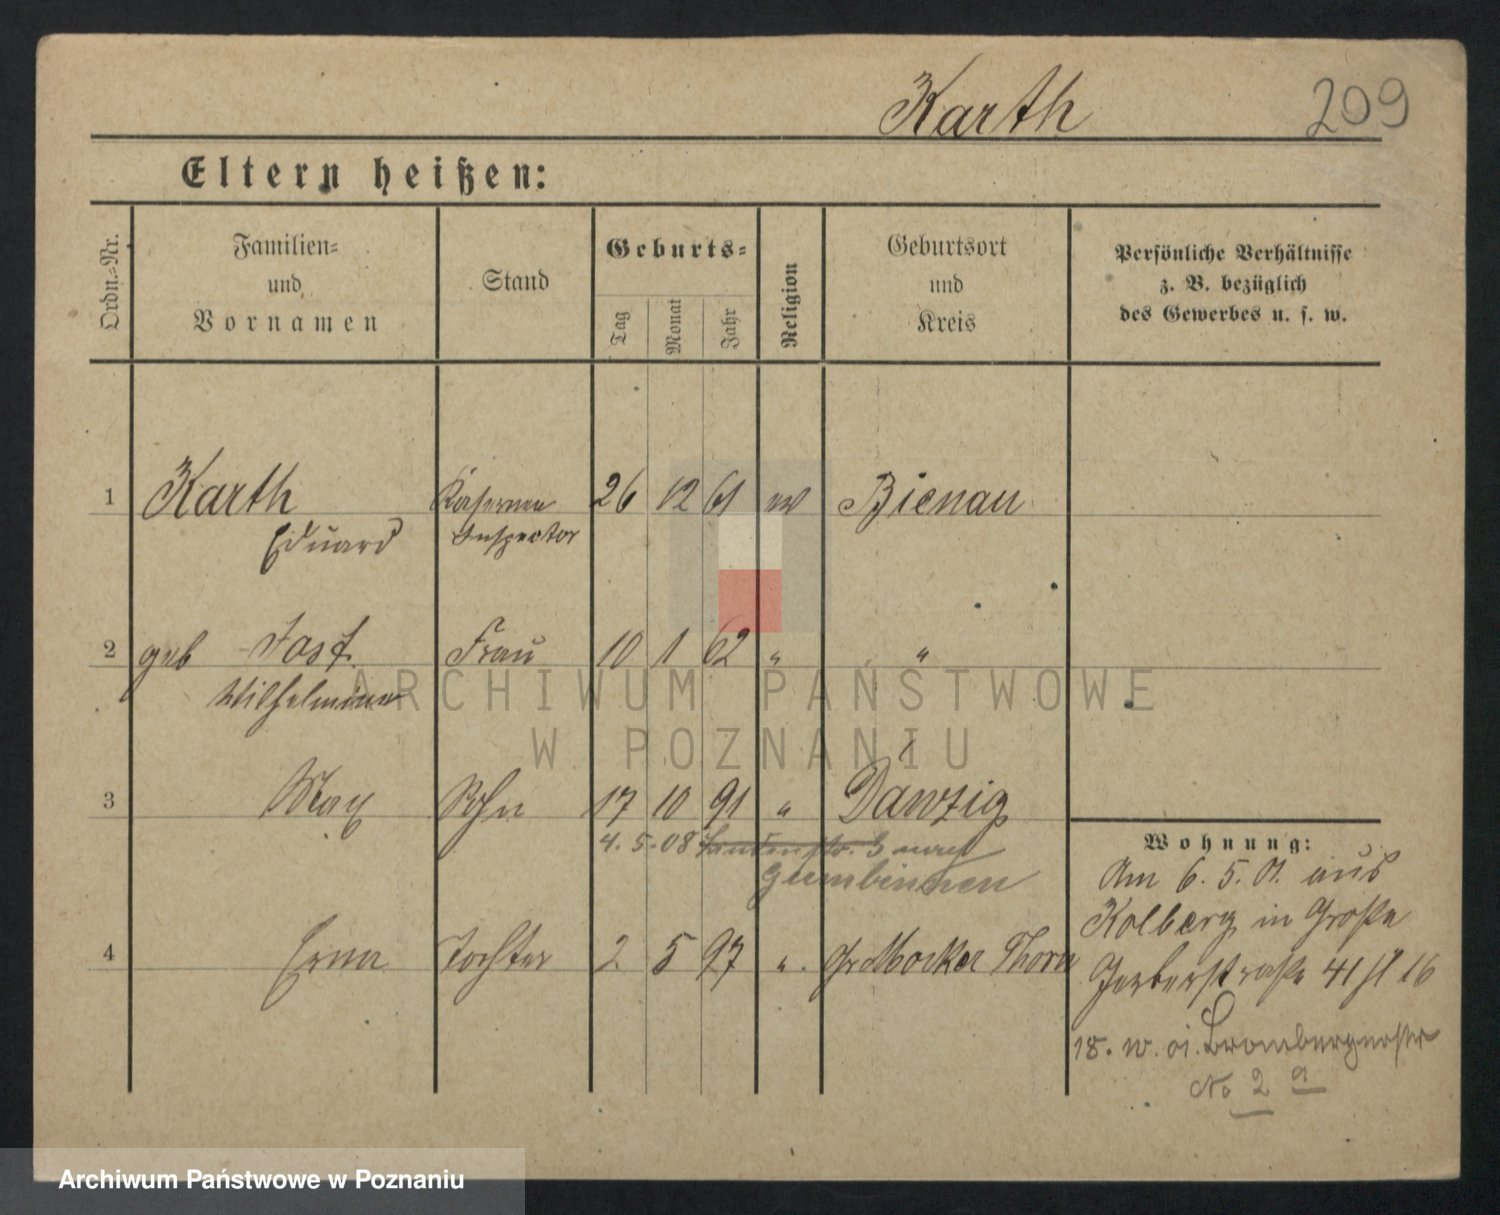 Karth 209
Eltern heißen:
Ordn.-Nr.
Familien-
und
Vornamen
Stand
Geburts-
Tag
Monat
Jahr
Religion
Geburtsort
und
Kreis
Persönliche Verhältnisse
z. B. bezüglich
des Gewerbes u. s. w.
1 Karth Kasernen 26 12 61 ev Bienau
Eduard Inspector
2 geb Jost Frau 10 1 62 " "
Wilhelmine
3 Max Sohn 17 10 91 " Danzig
4. 5. 08 3 nach
Gumbinnen
4 Erna Tochter 2 5 97 " Gr Mocker Thorn
Wohnung:
Am 6. 5. 01. aus
Kolberg in Große
Gerberstraße 41 16
18. Brombergerstr
No 2 a
ARCHIWUM PAŃSTWOWE
W POZNANIU
Archiwum Państwowe w Poznaniu